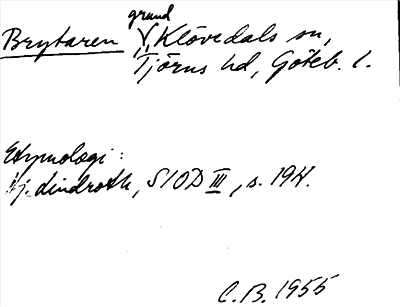 grund
Brytaren, Klövedals sn,
Tjörns hd, Göteb. l.
Etymologi:
Hj. Lindroth, SIOD III, s. 194.
C.B. 1955